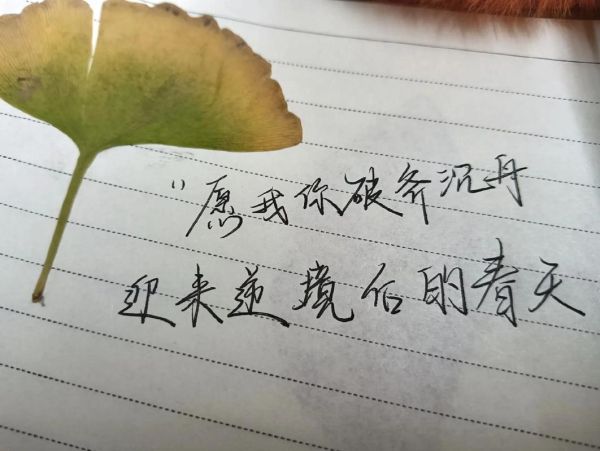 “愿我你破斧沉舟
迎来逆境后的春天